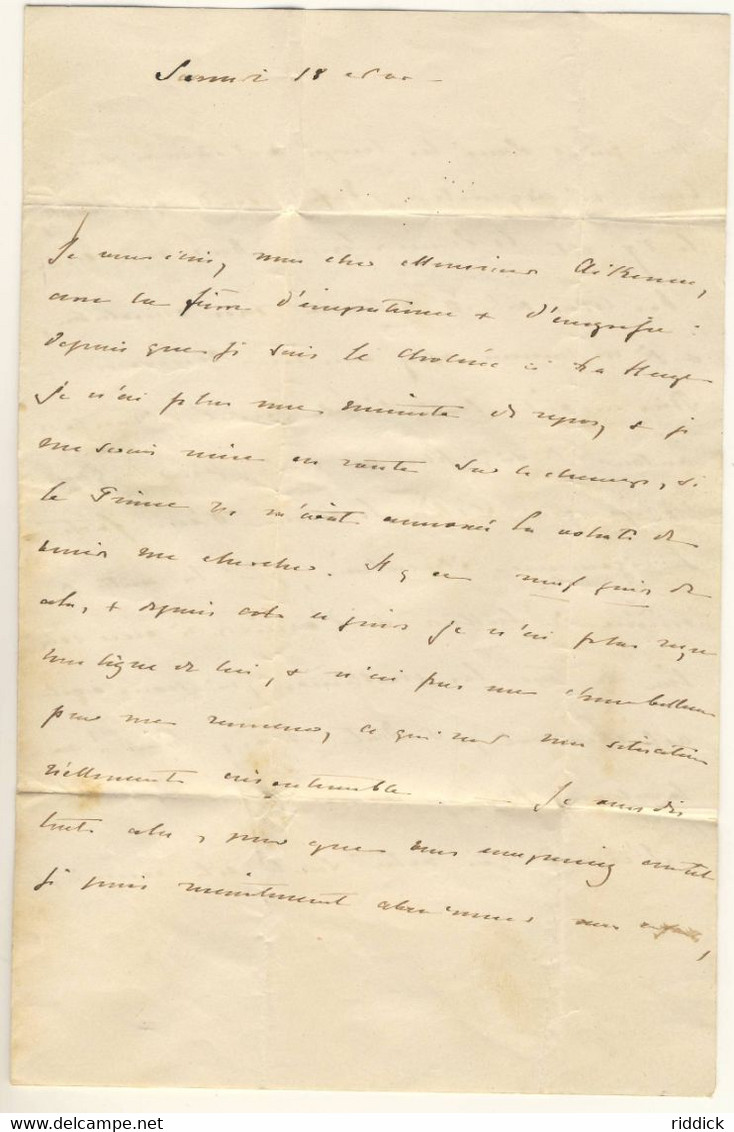 Samedi 18
Je vous écris, mon cher Monsieur Aikeman,
avec la fièvre d'impatience & d'angoisse :
depuis que je sais le Choléra à La Haye
je n'ai plus une minute de repos, & je
me serais mise en route sur le champ, si
le Prince ne m'avait annoncé la volonté de
venir me chercher. Il y a neuf jours de
cela, & depuis ces 9 jours je n'ai plus reçu
une ligne de lui, & n'ai pas un chambellan
pour me ramener, ce qui rend ma situation
réellement
Je vous dis
tout cela, pour que vous compreniez combien
je puis maintenant mes enfants,
delcampe.net
riddick